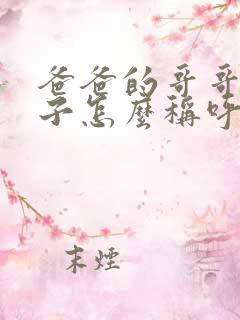 爸爸的哥哥
子怎麼稱呼
末煙